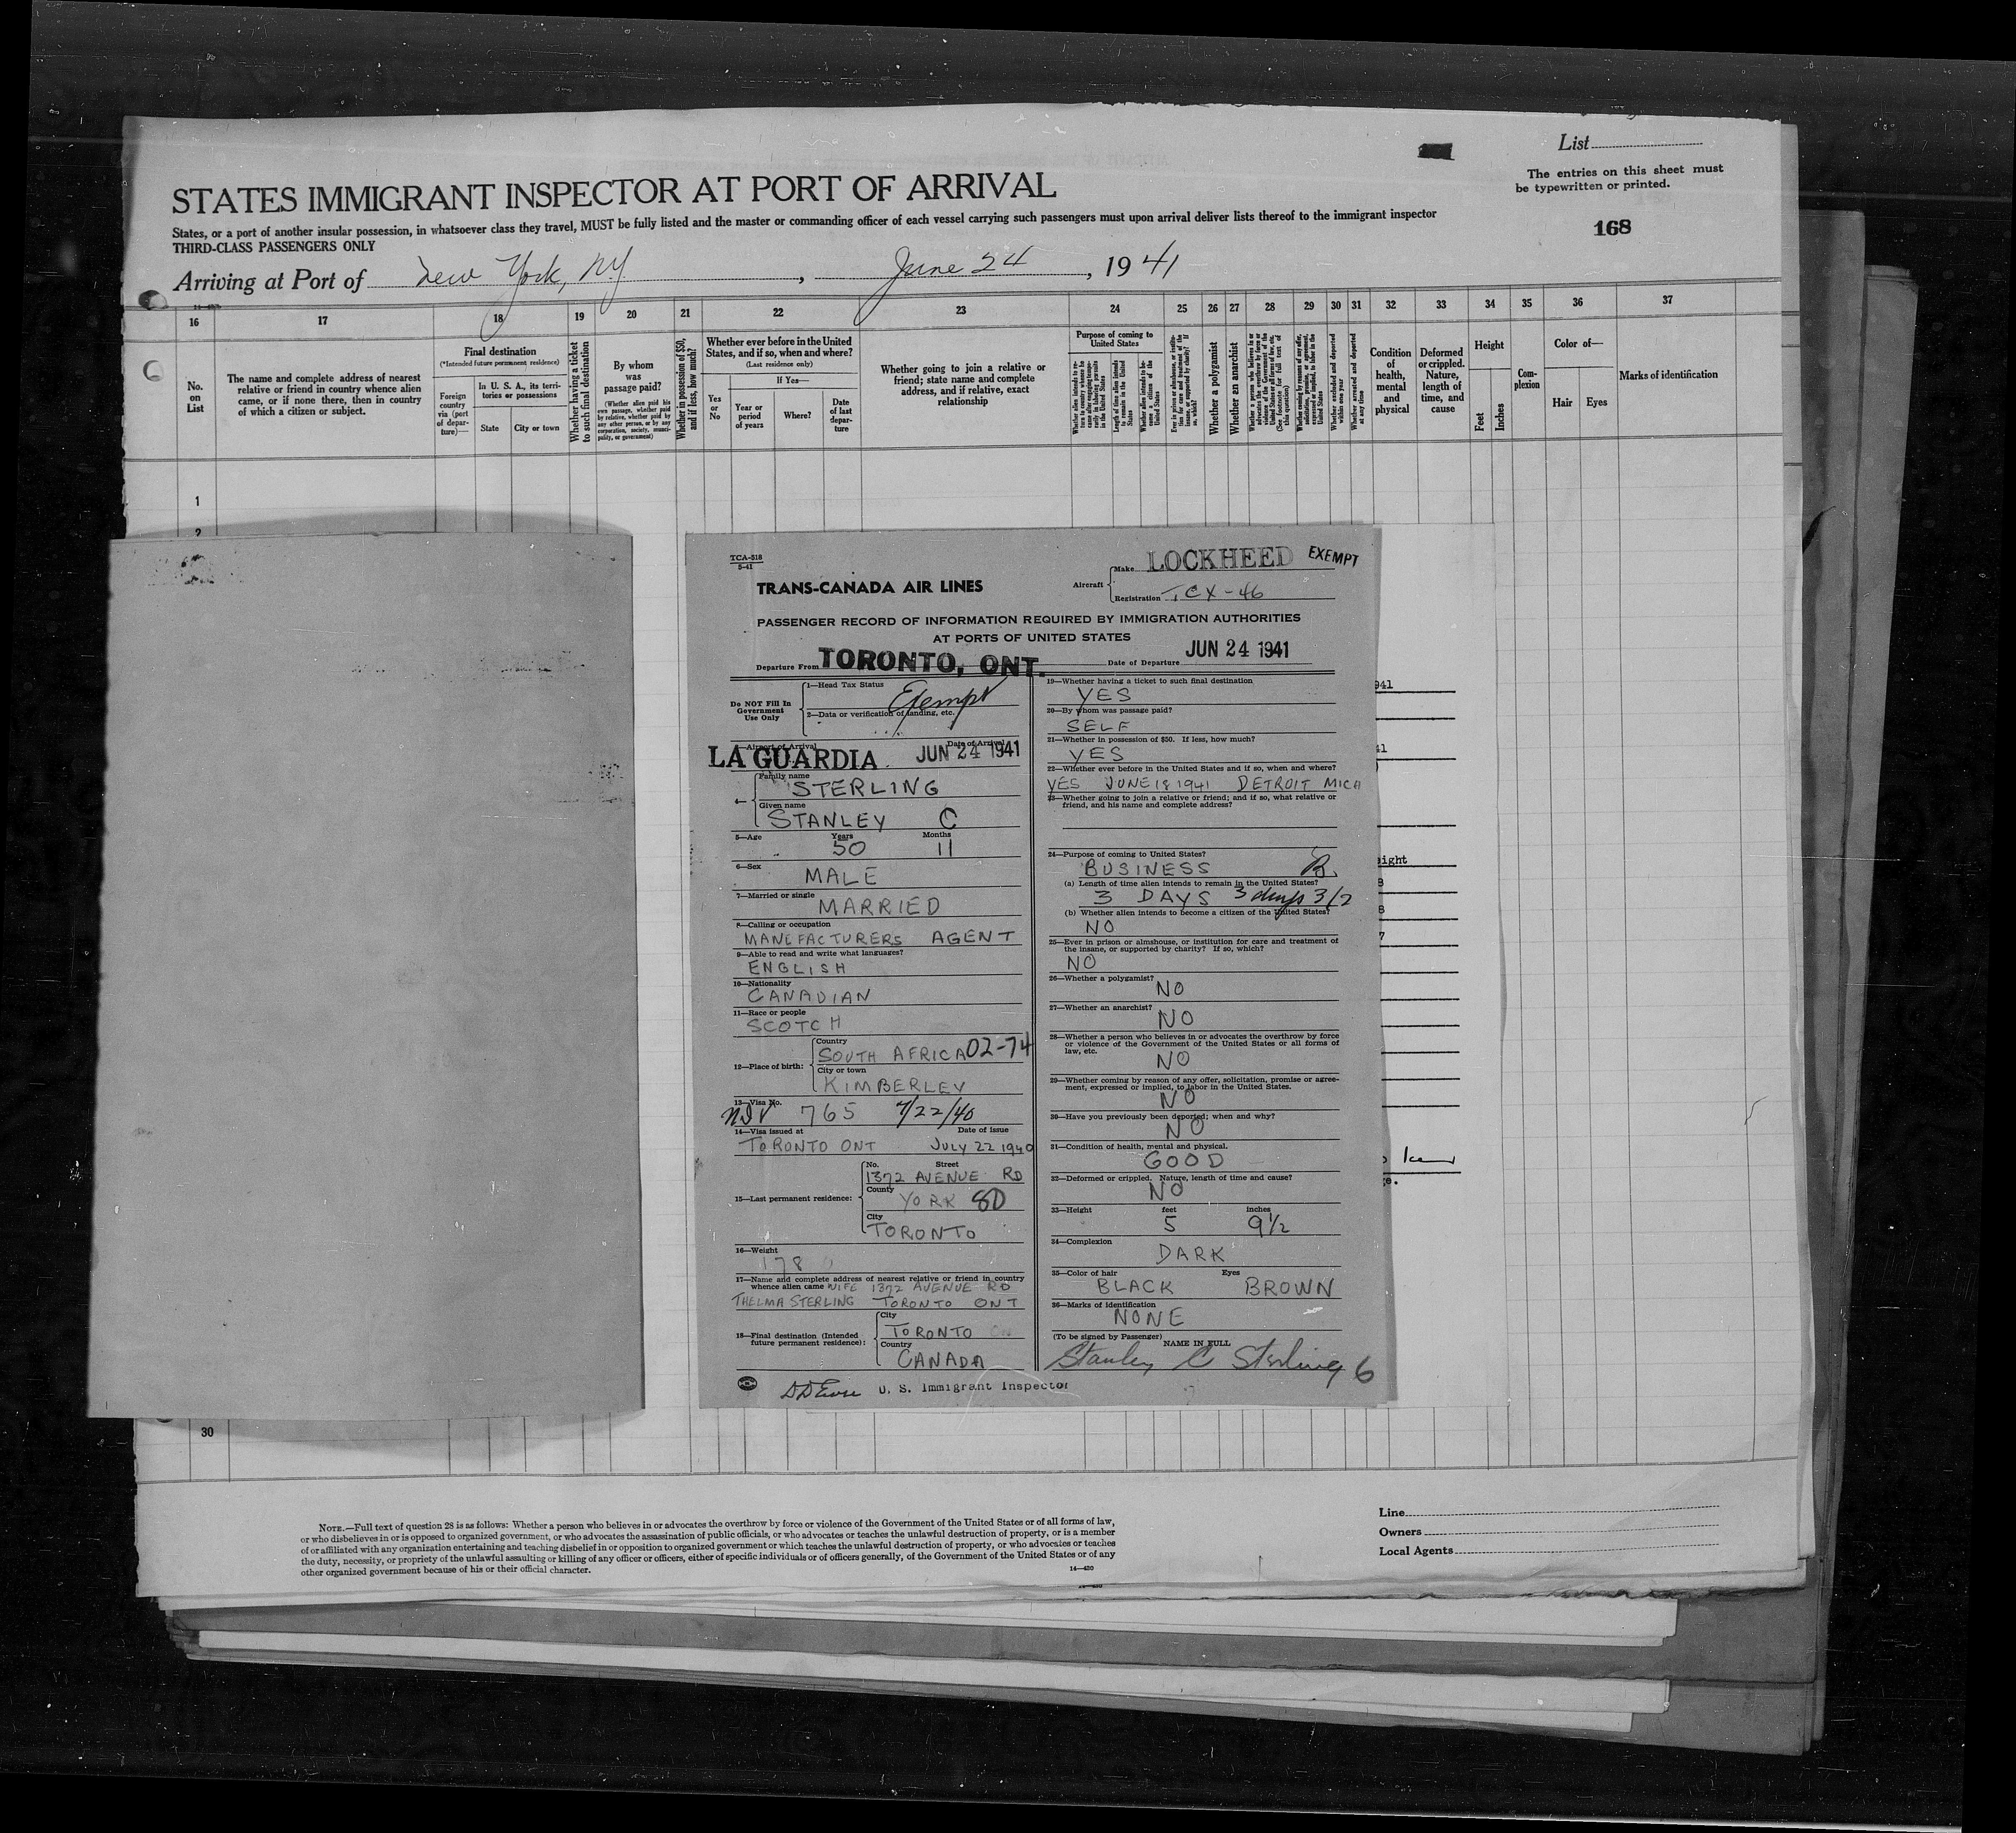 List
The entries on this sheet must
be typewritten or printed.
168
STATES IMMIGRANT INSPECTOR AT PORT OF ARRIVAL
States, or a port of another insular possession, in whatsoever class they travel, MUST be fully listed and the master or commanding officer of each vessel carrying such passengers must upon arrival deliver lists thereof to the immigrant inspector
THIRD-CLASS PASSENGERS ONLY
Arriving at Port of New York, NY, June 24, 1941
16 17 18 19 20 21 22 23 24 25 26 27 28 29 30 31 32 33 34 35 36 37
No. on List
The name and complete address of nearest
relative or friend in country whence alien
came, or if none there, then in country
of which a citizen or subject.
Final destination
(*Intended future permanent residence)
Foreign country via (port of departure)—
In U. S. A., its territories or possessions
State
City or town
Whether having a ticket to such final destination
By whom was passage paid?
(Whether alien paid his own passage, whether paid by relative, whether paid by any other person, or by any corporation, society, municipality, or government)
Whether in possession of $50, and if less, how much?
Whether ever before in the United
States, and if so, when and where?
(Last residence only)
If Yes—
Yes or No
Year or period of years
Where?
Date of last departure
Whether going to join a relative or
friend; state name and complete
address, and if relative, exact
relationship
Purpose of coming to United States
Whether a polygamist
Whether an anarchist
Whether arrested and deported at any time
Condition of health, mental and physical
Deformed or crippled. Nature, length of time, and cause
Height
Feet
Inches
Complexion
Color of—
Hair
Eyes
Marks of identification
1
2
TCA-518
5-41
TRANS-CANADA AIR LINES
Aircraft
Make LOCKHEED EXEMPT
Registration TCX-46
PASSENGER RECORD OF INFORMATION REQUIRED BY IMMIGRATION AUTHORITIES
AT PORTS OF UNITED STATES
Departure From TORONTO, ONT. Date of Departure JUN 24 1941
Do NOT Fill In
Government
Use Only
1—Head Tax Status Exempt
2—Data or verification of landing, etc.
Airport of Arrival Date of Arrival
LA GUARDIA JUN 24 1941
4— Family name
STERLING
Given name
STANLEY C
5—Age Years 50 Months 11
6—Sex MALE
7—Married or single MARRIED
8—Calling or occupation
MANUFACTURERS AGENT
9—Able to read and write what languages?
ENGLISH
10—Nationality
CANADIAN
11—Race or people
SCOTCH
12—Place of birth: Country
SOUTH AFRICA 02-74
City or town
KIMBERLEY
13—Visa No.
NIV 765 7/22/40
14—Visa issued at Date of issue
TORONTO ONT JULY 22 1940
15—Last permanent residence:
No. Street
1372 AVENUE RD
County
YORK 80
City
TORONTO
16—Weight
178
17—Name and complete address of nearest relative or friend in country
whence alien came WIFE 1372 AVENUE RD
THELMA STERLING TORONTO ONT
18—Final destination (Intended
future permanent residence):
City
TORONTO
Country
CANADA
19—Whether having a ticket to such final destination
YES
20—By whom was passage paid?
SELF
21—Whether in possession of $50. If less, how much?
YES
22—Whether ever before in the United States and if so, when and where?
YES JUNE 18 1941 DETROIT MICH
23—Whether going to join a relative or friend; and if so, what relative or
friend, and his name and complete address?
24—Purpose of coming to United States?
BUSINESS B.
(a) Length of time alien intends to remain in the United States?
3 DAYS 3 days 3/2
(b) Whether alien intends to become a citizen of the United States?
NO
25—Ever in prison or almshouse, or institution for care and treatment of
the insane, or supported by charity? If so, which?
NO
26—Whether a polygamist?
NO
27—Whether an anarchist?
NO
28—Whether a person who believes in or advocates the overthrow by force
or violence of the Government of the United States or all forms of
law, etc.
NO
29—Whether coming by reason of any offer, solicitation, promise or agree-
ment, expressed or implied, to labor in the United States.
NO
30—Have you previously been deported; when and why?
NO
31—Condition of health, mental and physical.
GOOD
32—Deformed or crippled. Nature, length of time and cause?
NO
33—Height feet inches
5 9½
34—Complexion
DARK
35—Color of hair Eyes
BLACK BROWN
36—Marks of identification
NONE
(To be signed by Passenger)
NAME IN FULL
Stanley C Sterling 6
U. S. Immigrant Inspector
941
41
eight
8
8
7
30
NOTE.—Full text of question 28 is as follows: Whether a person who believes in or advocates the overthrow by force or violence of the Government of the United States or of all forms of law,
or who disbelieves in or is opposed to organized government, or who advocates the assassination of public officials, or who advocates or teaches the unlawful destruction of property, or is a member
of or affiliated with any organization entertaining and teaching disbelief in or opposition to organized government or which teaches the unlawful destruction of property, or who advocates or teaches
the duty, necessity, or propriety of the unlawful assaulting or killing of any officer or officers, either of specific individuals or of officers generally, of the Government of the United States or of any
other organized government because of his or their official character.
14—430
Line
Owners
Local Agents